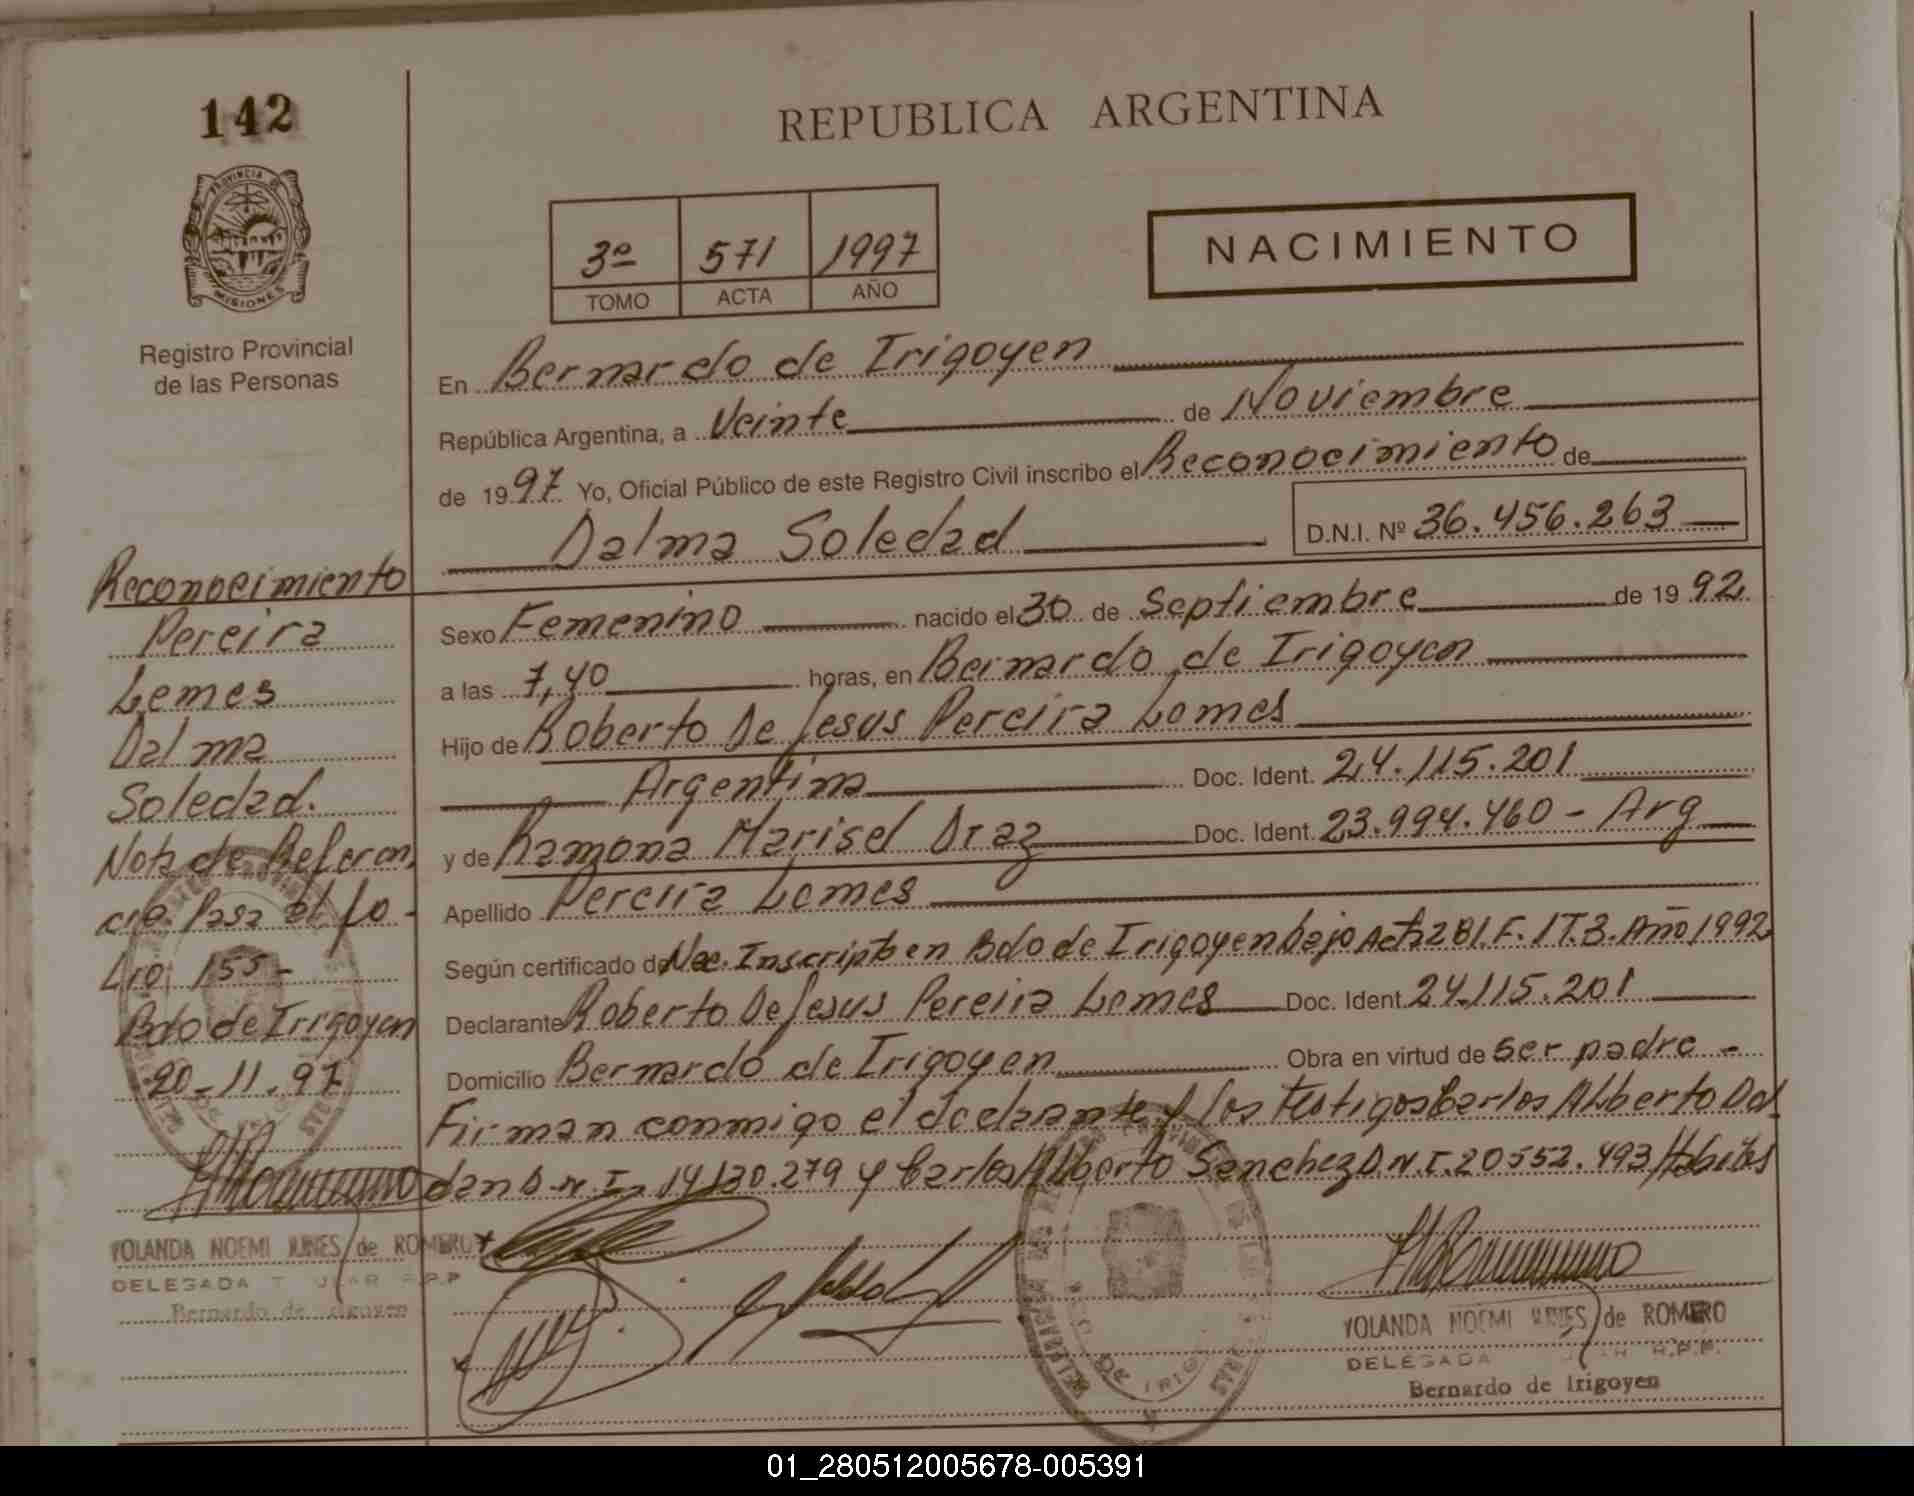 142
PROVINCIA DE
MISIONES
Registro Provincial
de las Personas
REPUBLICA ARGENTINA
3º 571 1997
TOMO ACTA AÑO
NACIMIENTO
En Bernardo de Irigoyen
República Argentina, a Veinte de Noviembre
de 1997 Yo, Oficial Público de este Registro Civil inscribo el Reconocimiento de
Dalma Soledad D.N.I. Nº 36.456.263
Sexo Femenino nacido el 30 de Septiembre de 1992
a las 7,40 horas, en Bernardo de Irigoyen
Hijo de Roberto De Jesus Pereira Lemes
Argentina Doc. Ident. 24.115.201
y de Ramona Marisel Diaz Doc. Ident. 23.994.460 - Arg
Apellido Pereira Lemes
Según certificado de Nac. Inscripto en Bdo de Irigoyen bajo Acta 281. F. 1T.3. Año 1992
Declarante Roberto De Jesus Pereira Lemes Doc. Ident. 24.115.201
Domicilio Bernardo de Irigoyen Obra en virtud de ser padre -
Firman conmigo el declarante y los testigos Carlos Alberto Dal
dan D.N.I. 14.130.279 y Carlos Alberto Sanchez D.N.I. 20.552.493 Habiles
Reconocimiento
Pereira
Lemes
Dalma
Soledad.
Nota de Referen,
cia. Pasa al fo-
Lio: 155-
Bdo de Irigoyen
20-11-97
YOLANDA NOEMI de ROMERO
DELEGADA
Bernardo de Irigoyen
YOLANDA NOEMI de ROMERO
DELEGADA R.P.P.
Bernardo de Irigoyen
01_280512005678-005391